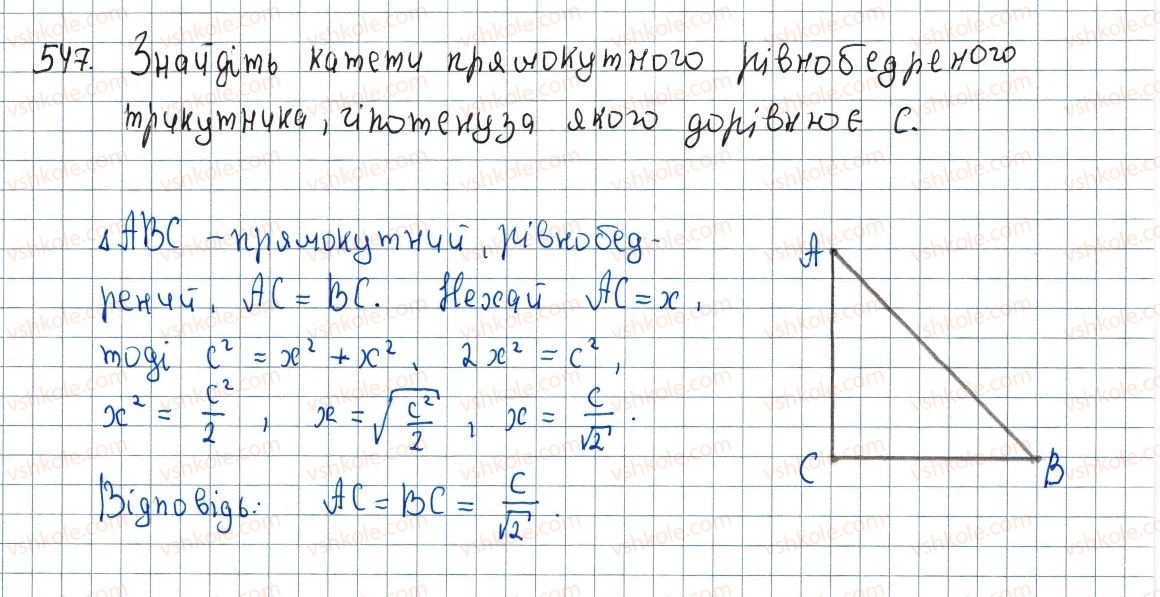 547. Знайдіть катети прямокутного рівнобедреного
трикутника, гіпотенуза якого дорівнює c.
△ABC – прямокутний, рівнобед-
рений, AC = BC. Нехай AC = x,
тоді c² = x² + x², 2x² = c²,
x² = c²/2, x = √(c²/2), x = c/√2.
Відповідь: AC = BC = c/√2.
A
C
B
vshkole.com